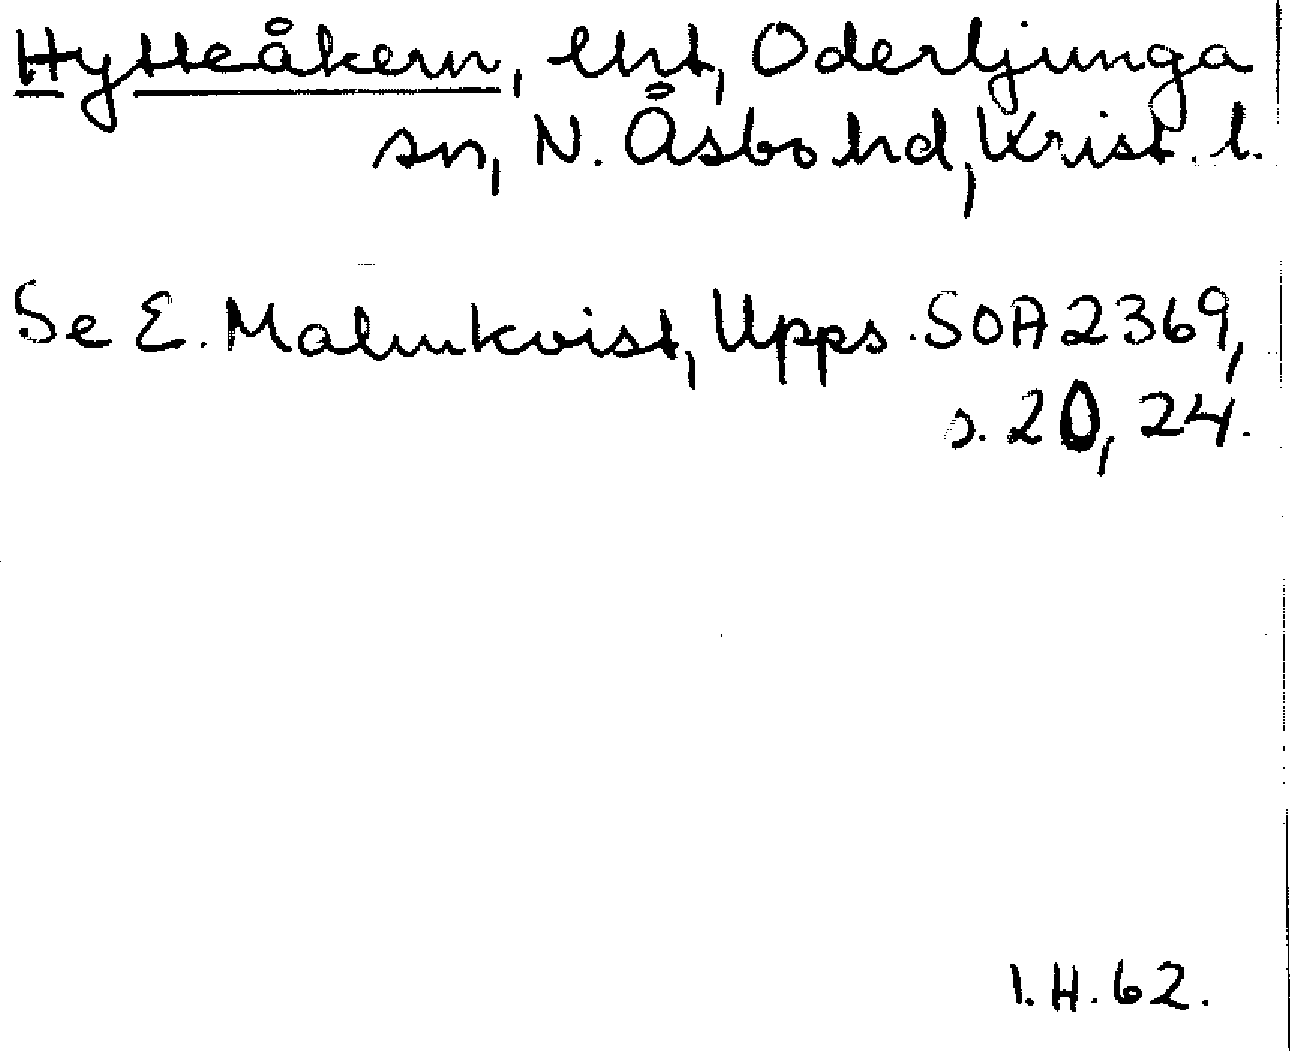 Hytteåkern, lht, Oderljunga
sn, N. Åsbo hd, Krist. l.
Se E. Malmkvist, Upps. SOA 2369,
s. 20, 24.
I.H. 62.